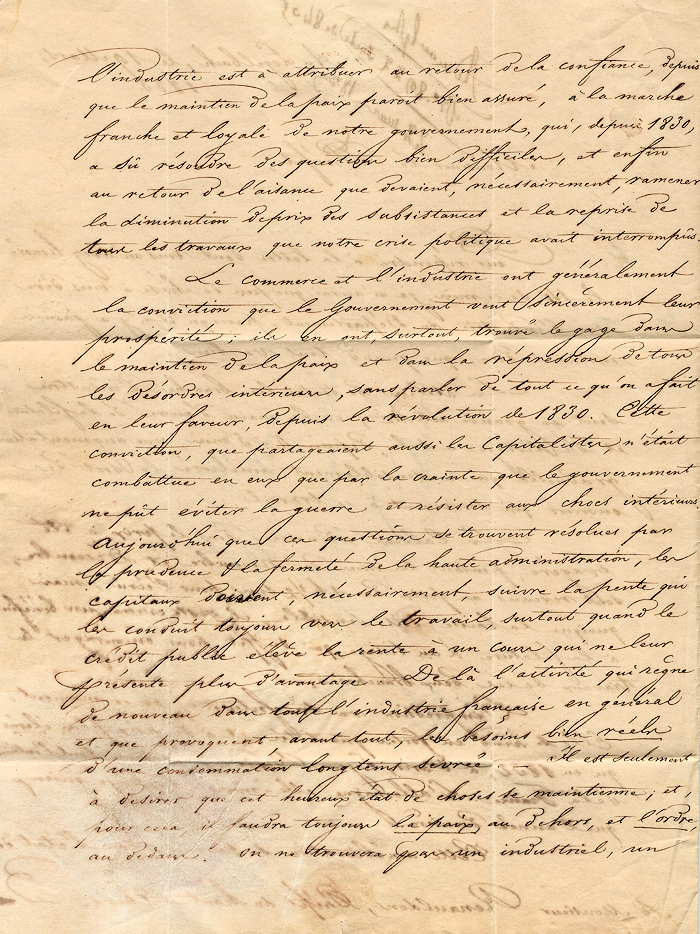 l'industrie est à attribuer au retour de la confiance, depuis
que le maintien de la paix paroit bien assuré, à la marche
franche et loyale de notre gouvernement, qui, depuis 1830,
a sû résoudre des questions bien difficiles, et enfin
au retour de l'aisance que devaient, nécessairement, ramener
la diminution de prix des subsistances et la reprise de
tous les travaux que notre crise politique avait interrompûs.
Le commerce et l'industrie ont généralement
la conviction que le Gouvernement veut sincèrement leur
prospérité; ils en ont, surtout, trouvé le gage dans
le maintien de la paix et dans la répression de tous
les désordres intérieurs, sans parler de tout ce qu'on a fait
en leur faveur, depuis la révolution de 1830. Cette
conviction, que partageaient aussi les Capitalistes, n'était
combattue en eux que par la crainte que le gouvernement
ne pût éviter la guerre et résister aux chocs intérieurs.
Aujourd'hui que ces questions se trouvent résolues par
la prudence & la fermeté de la haute administration, les
capitaux doivent, nécessairement, suivre la pente qui
les conduit toujours vers le travail, surtout quand le
crédit public élève la rente à un cours qui ne leur
présente plus d'avantage. De là l'activité qui règne
de nouveau dans toute l'industrie française en général
et que provoquent, avant tout, les besoins bien réels
d'une consommation longtems sevrée. — Il est seulement
à désirer que cet heureux état de choses se maintienne; et,
pour cela il faudra toujours la paix, au dehors, et l'ordre
au dedans. On ne trouvera pas un industriel, un